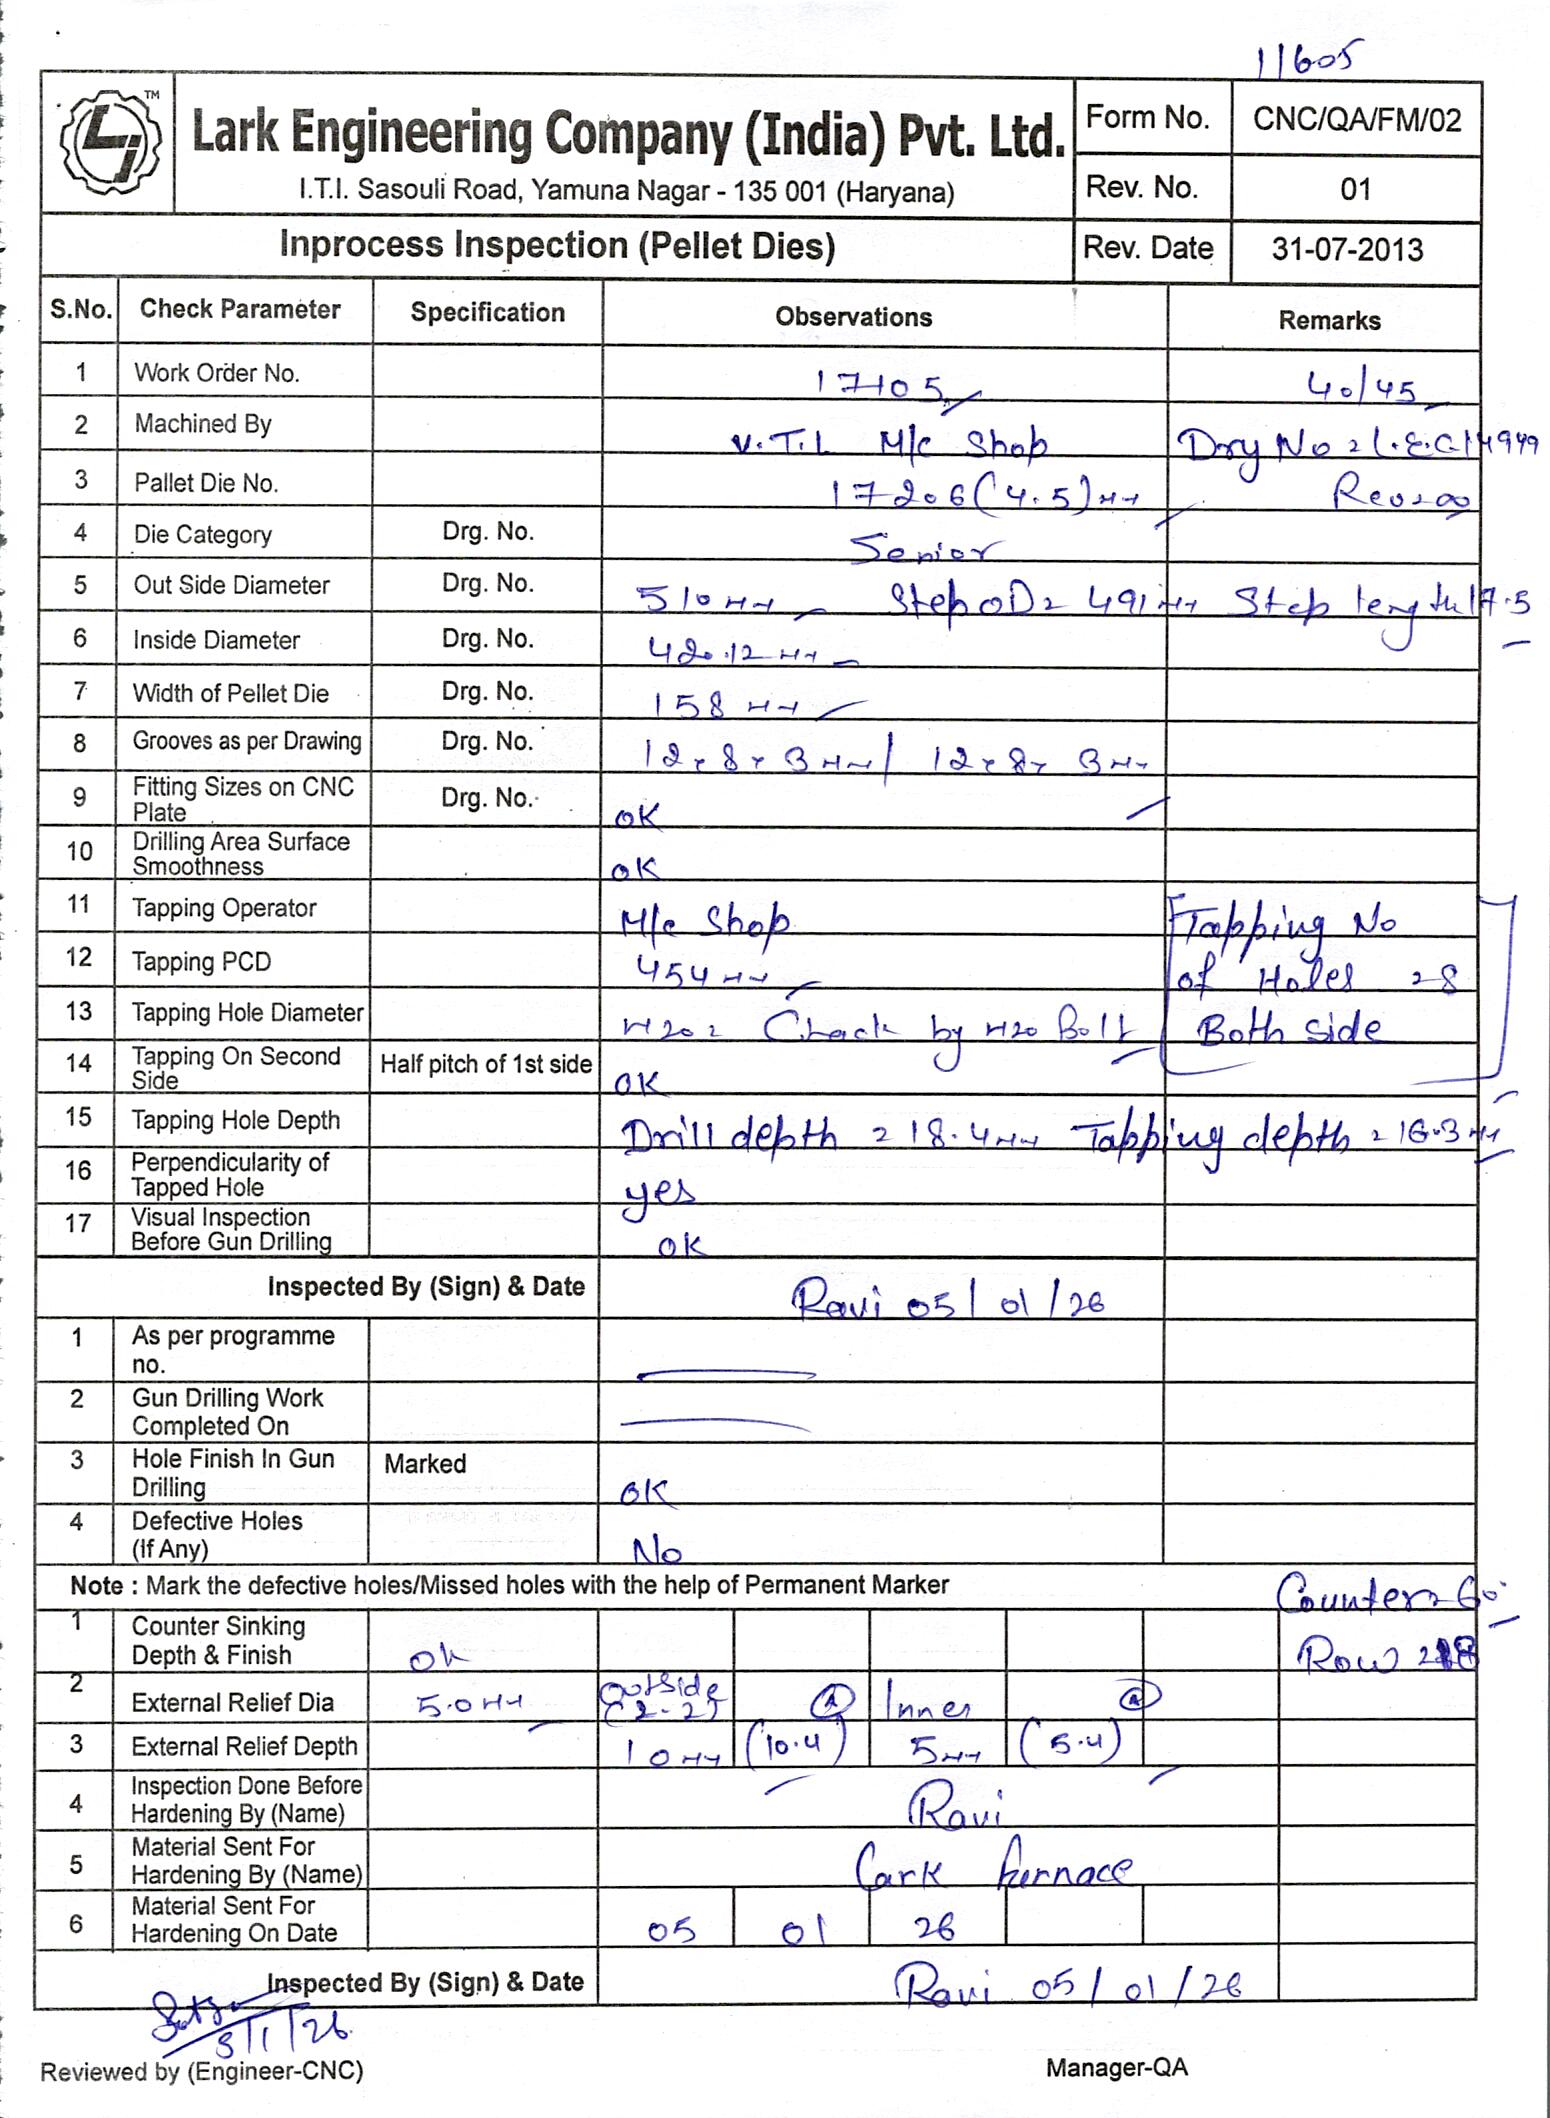 11605
TM
Lark Engineering Company (India) Pvt. Ltd.
I.T.I. Sasouli Road, Yamuna Nagar - 135 001 (Haryana)
Form No. CNC/QA/FM/02
Rev. No. 01
Inprocess Inspection (Pellet Dies)
Rev. Date 31-07-2013
S.No. Check Parameter Specification Observations Remarks
1 Work Order No. 17105 40/45
2 Machined By V.T.L M/c Shop Drg No = L.E.C
3 Pallet Die No. 17206 (4.5) mm Rev=00
4 Die Category Drg. No. Senior
5 Out Side Diameter Drg. No. 510 mm Step OD= 491 mm Step length 17.5
6 Inside Diameter Drg. No. 420.12 mm
7 Width of Pellet Die Drg. No. 158 mm
8 Grooves as per Drawing Drg. No. 12x8x3 mm / 12x8x3 mm
9 Fitting Sizes on CNC Plate Drg. No. OK
10 Drilling Area Surface Smoothness OK
11 Tapping Operator M/c Shop Tapping No
12 Tapping PCD 454 mm of Holes =8
13 Tapping Hole Diameter M20 = Chack by M20 Bolt Both side
14 Tapping On Second Side Half pitch of 1st side OK
15 Tapping Hole Depth Drill depth = 18.4 mm Tapping depth = 16.3 mm
16 Perpendicularity of Tapped Hole yes
17 Visual Inspection Before Gun Drilling OK
Inspected By (Sign) & Date Ravi 05/01/26
1 As per programme no.
2 Gun Drilling Work Completed On
3 Hole Finish In Gun Drilling Marked OK
4 Defective Holes (If Any) No
Note : Mark the defective holes/Missed holes with the help of Permanent Marker Counter= 60°
1 Counter Sinking Depth & Finish OK Row =
2 External Relief Dia 5.0 mm Outside (2-2) Inner
3 External Relief Depth 10 mm (10.4) 5 mm (5.4)
4 Inspection Done Before Hardening By (Name) Ravi
5 Material Sent For Hardening By (Name) Lark furnace
6 Material Sent For Hardening On Date 05 01 26
Inspected By (Sign) & Date Ravi 05/01/26
5/1/26
Reviewed by (Engineer-CNC) Manager-QA